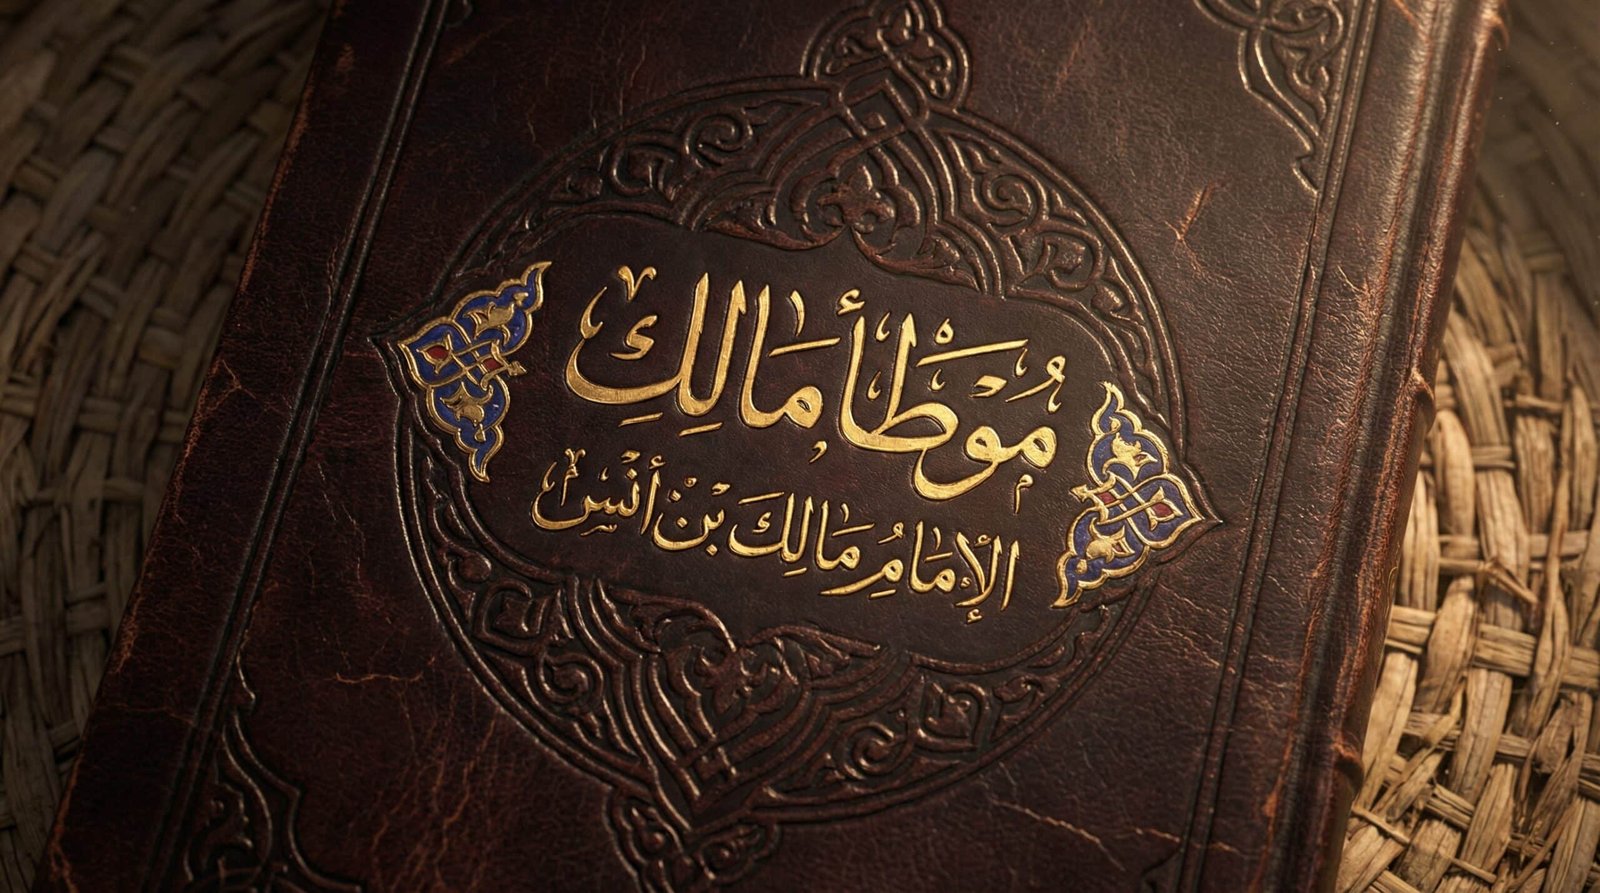 مُوَطَّأ مَالِكِ
الإِمَامُ مَالِكَ بْنْ أَنَسْ